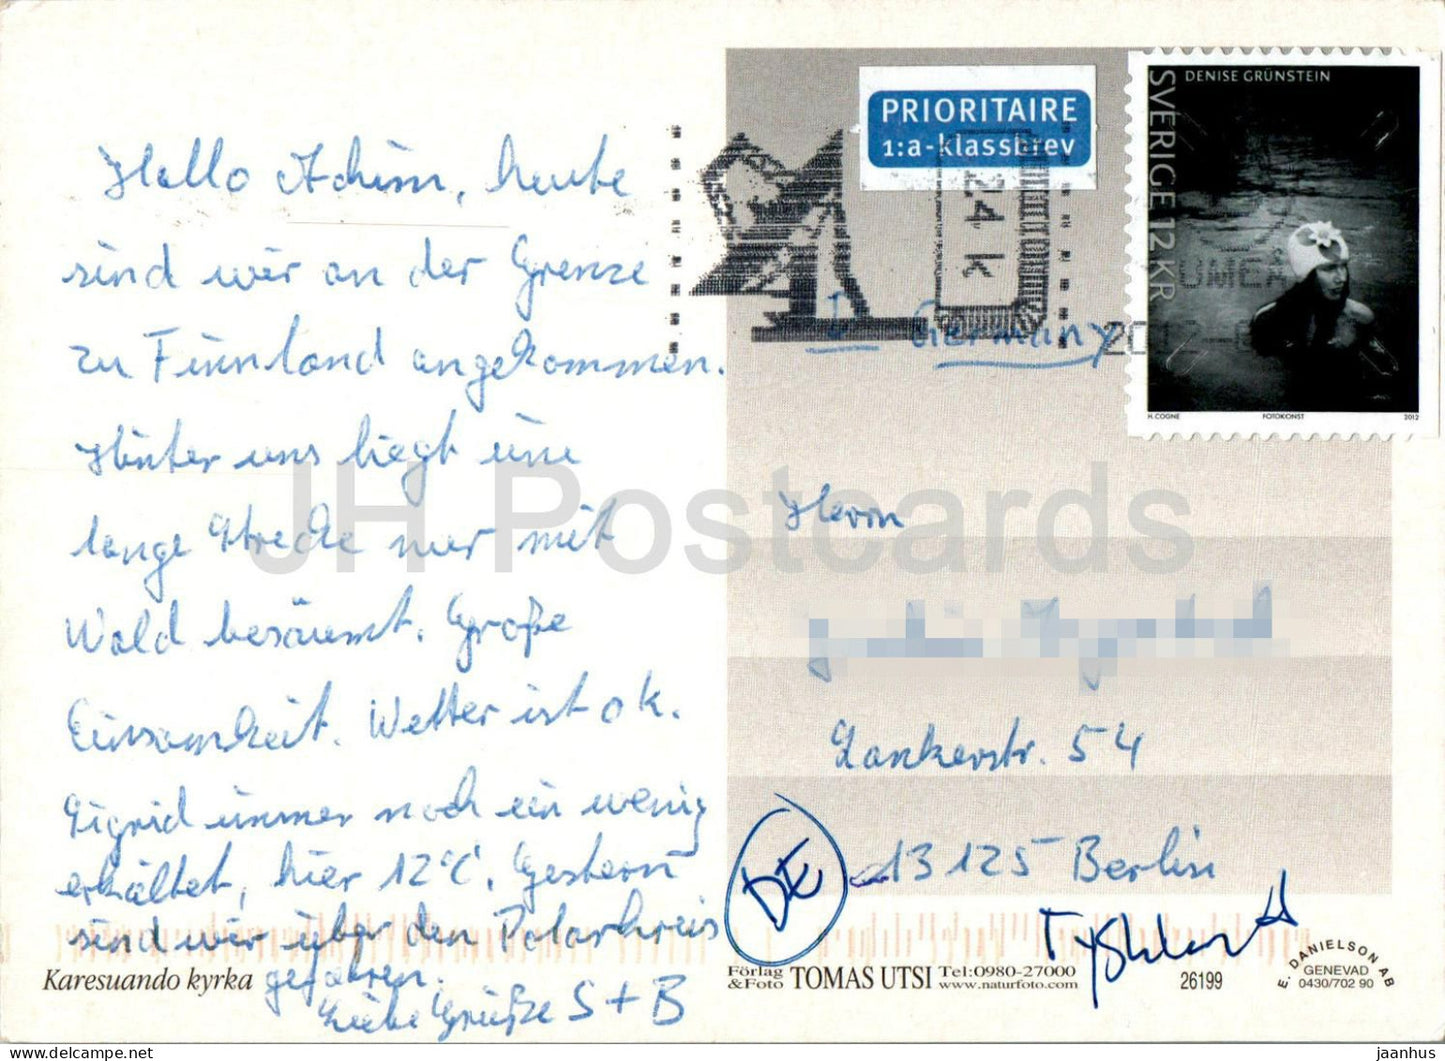 Hallo Achim, heute
sind wir an der Grenze
zu Finnland angekommen.
Hinter uns liegt eine
lange Strecke nur mit
Wald besäumt. Große
Einsamkeit. Wetter ist ok.
Sigrid immer noch ein wenig
erkältet, hier 12°C. Gestern
sind wir über den Polarkreis
gefahren.
Liebe Grüße S + B
Karesuando kyrka
PRIORITAIRE
1:a-klassbrev
24 k
DENISE GRÜNSTEIN
SVERIGE 12 KR
H. COGNE FOTOKONST 2012
Germany
Herrn
Zankerstr. 54
13125 Berlin
DE
Tyskland
Förlag
&Foto TOMAS UTSI Tel:0980-27000
www.naturfoto.com
26199
E. DANIELSON AB
GENEVAD
0430/702 90
JH Postcards
© jaanhus
https://jaanhus.delcampe.net
jaanhus